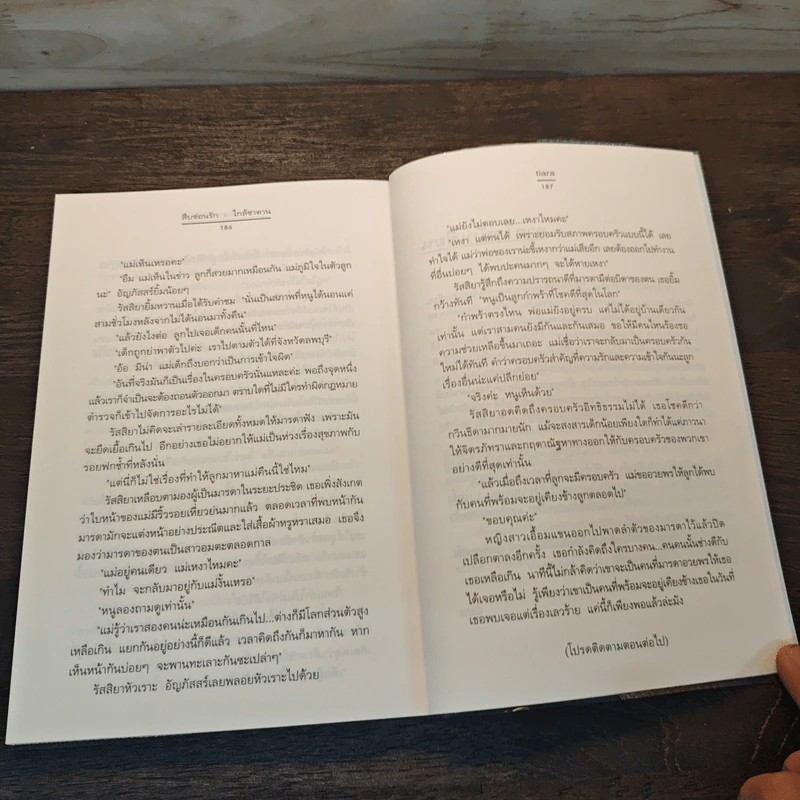 สืบซ่อนรัก ใกล้ชาตาน
186
"แม่เห็นเหรอคะ"
"อืม แม่เห็นในข่าว ลูกก็สวยมากเหมือนกัน แม่ภูมิใจในตัวลูก
นะ" อัญภัสสร์ยิ้มน้อยๆ
รัสสิยายิ้มหวานเมื่อได้รับคำชม "นั่นเป็นสภาพที่หนูได้นอนแค่
สามชั่วโมงหลังจากไม่ได้นอนมาทั้งคืน"
"แล้วยังไงต่อ ลูกไปเจอเด็กคนนั้นที่ไหน"
"เด็กถูกย่าพาตัวไปค่ะ เราไปตามตัวได้ที่จังหวัดลพบุรี"
"อ้อ มิน่า แม่เด็กถึงบอกว่าเป็นการเข้าใจผิด"
"อันที่จริงมันก็เป็นเรื่องในครอบครัวนั่นแหละค่ะ พอถึงจุดหนึ่ง
แล้วเราก็จำเป็นจะต้องถอนตัวออกมา ตราบใดที่ไม่มีใครทำผิดกฎหมาย
ตำรวจก็เข้าไปจัดการอะไรไม่ได้"
รัสสิยาไม่คิดจะเล่ารายละเอียดทั้งหมดให้มารดาฟัง เพราะมัน
จะยืดเยื้อเกินไป อีกอย่างเธอไม่อยากให้แม่เป็นห่วงเรื่องสุขภาพกับ
รอยฟกช้ำที่หลังนั่น
"แต่นี่ก็ไม่ใช่เรื่องที่ทำให้ลูกมาหาแม่คืนนี้ใช่ไหม"
รัสสิยาเหลือบตามองผู้เป็นมารดาในระยะประชิด เธอเพิ่งสังเกต
ว่าใบหน้าของแม่มีริ้วรอยเหี่ยวย่นมากแล้ว ตลอดเวลาที่พบหน้ากัน
มารดามักจะแต่งหน้าอย่างประณีตและใส่เสื้อผ้าหรูหราเสมอ เธอจึง
มองว่ามารดาของตนเป็นสาวอมตะตลอดกาล
"แม่อยู่คนเดียว แม่เหงาไหมคะ"
"ทำไม จะกลับมาอยู่กับแม่งั้นเหรอ"
"หนูลองถามดูเท่านั้น"
"แม่รู้ว่าเราสองคนน่ะเหมือนกันเกินไป...ต่างก็มีโลกส่วนตัวสูง
เหลือเกิน แยกกันอยู่อย่างนี้ก็ดีแล้ว เวลาคิดถึงกันก็มาหากัน หาก
เห็นหน้ากันบ่อยๆ จะพานทะเลาะกันซะเปล่าๆ"
รัสสิยาหัวเราะ อัญภัสสร์เลยพลอยหัวเราะไปด้วย
tiara
187
"แม่ยังไม่ตอบเลย...เหงาไหมคะ"
"เหงา แต่ทนได้ เพราะยอมรับสภาพครอบครัวแบบนี้ได้ เลย
ทำใจได้ แม่ว่าพ่อของเราน่ะขี้เหงากว่าแม่เสียอีก เลยต้องออกไปทำงาน
ที่อื่นบ่อยๆ ได้พบปะคนมากๆ จะได้หายเหงา"
รัสสิยารู้สึกถึงความปรารถนาดีที่มารดามีต่อบิดาของตน เธอยิ้ม
กว้างทันที "หนูเป็นลูกกำพร้าที่โชคดีที่สุดในโลก"
"กำพร้าตรงไหน พ่อแม่ยังอยู่ครบ แค่ไม่ได้อยู่บ้านเดียวกัน
เท่านั้น แต่เราสามคนยังมีกันและกันเสมอ ขอให้มีคนไหนร้องขอ
ความช่วยเหลือขึ้นมาเถอะ แม่เชื่อว่าเราจะกลับมาเป็นครอบครัวกัน
ใหม่ได้ทันที คำว่าครอบครัวสำคัญที่ความรักและความเข้าใจกันนะลูก
เรื่องอื่นน่ะแค่ปลีกย่อย"
"จริงค่ะ หนูเห็นด้วย"
รัสสิยาอดคิดถึงครอบครัวอิทธิธรรมไม่ได้ เธอโชคดีกว่า
กวินธิดามากมายนัก แม้จะสงสารเด็กน้อยเพียงใดก็ทำได้แค่ภาวนา
ให้จิตรภัทราและกฤตาณัฐหาทางออกให้กับครอบครัวของพวกเขา
อย่างดีที่สุดเท่านั้น
"แล้วเมื่อถึงเวลาที่ลูกจะมีครอบครัว แม่ขออวยพรให้ลูกได้พบ
กับคนที่พร้อมจะอยู่เคียงข้างลูกตลอดไป"
"ขอบคุณค่ะ"
หญิงสาวเอื้อมแขนออกไปพาดลำตัวของมารดาไว้แล้วปิด
เปลือกตาลงอีกครั้ง เธอกำลังคิดถึงใครบางคน...คนคนนั้นช่างดีกับ
เธอเหลือเกิน นาทีนี้ไม่กล้าคิดว่าเขาจะเป็นคนที่มารดาอวยพรให้เธอ
ได้เจอหรือไม่ รู้เพียงว่าเขาเป็นคนที่พร้อมจะอยู่เคียงข้างเธอในวันที่
เธอพบเจอแต่เรื่องเลวร้าย แค่นี้ก็เพียงพอแล้วล่ะมัง
(โปรดติดตามตอนต่อไป)